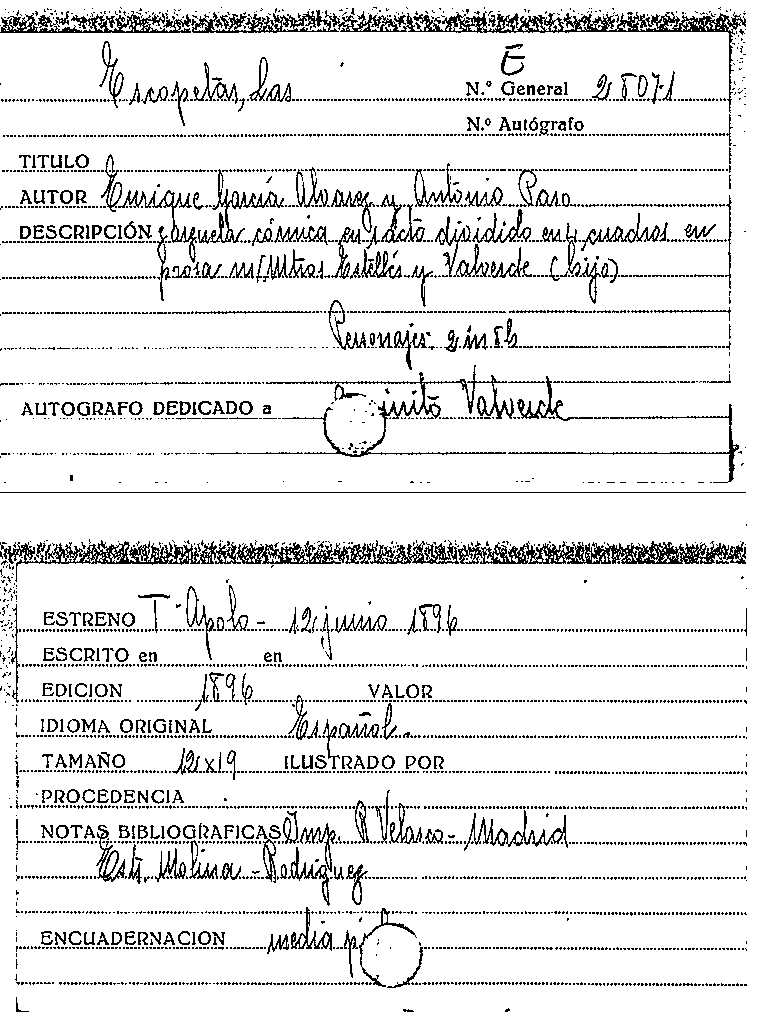 E
Escopetas, Las N.º General 28071
N.º Autógrafo
TITULO
AUTOR Enrique García Alvarez y Antonio Paso
DESCRIPCIÓN zarzuela cómica en 1 acto dividido en 4 cuadros en
prosa m/Mtros Estellés y Valverde (hijo)
Personajes: 2 m 8 h
AUTOGRAFO DEDICADO a Valverde
ESTRENO T. Apolo - 12 junio 1896
ESCRITO en en
EDICION 1896 VALOR
IDIOMA ORIGINAL Español.
TAMAÑO 12x19 ILUSTRADO POR
PROCEDENCIA
NOTAS BIBLIOGRAFICAS Imp. R Velasco - Madrid
Estr. Molina - Rodriguez
ENCUADERNACION media